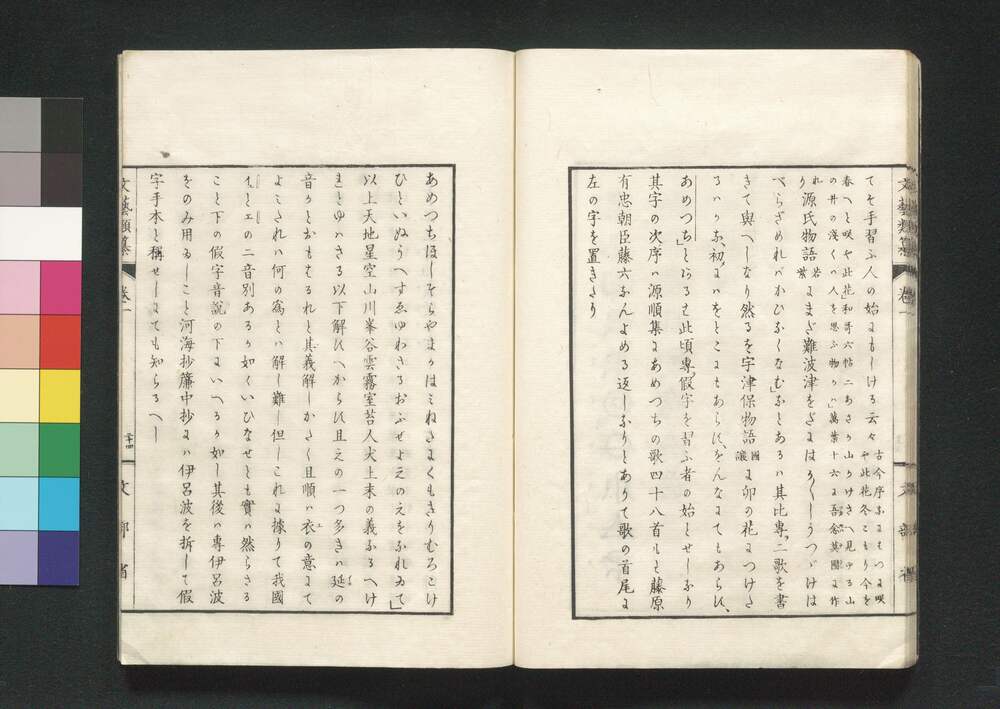 てそ手習ふ人の始にもしける云々
古今序なにはつに咲
や此花冬こもり今を
春へと咲や此花」和哥六帖二あさか山かけさへ見ゆる山
の井の淺くの人を思ふ物か」萬葉十六に
り源氏物語若紫にまだ難波津をだにはか〳〵しうつゞけは
べらざめればかひなくなむ」などあるハ其比専二歌を書
きて與へしなり然るを宇津保物語國讓に卯の花につけた
るハかな、初にハをとこにもあらず、をんなにてもあらず、
あめつち」とあるも此頃專假字を習ふ者の始とせしなり
其字の次序ハ源順集にあめつちの歌四十八首もと藤原
有忠朝臣藤六なんよめる返しなりとありて歌の首尾に
左の字を置きたり
あめつちほしそらやまかはみねたにくもきりむろこけ
ひといぬうへすゑゆわさるおふせよえのえをなれゐて」
以上天地星空山川峯谷雲霧室苔人犬上末の義なるへけ
れとゆハさる以下解すへからす且えの一つ多きハ延の
音かとおもはるれと其義解しかたく且順ハ衣の意にて
よみたれハ何の爲とハ解し難し但しこれに據りて我國
いとエの二音別あるか如くいひなせとも實ハ然らさる
こと下の假字音説の下にいへるか如し其後ハ專伊呂波
をのみ用ゐしこと河海抄簾中抄にハ伊呂波を拆して假
字手本と稱せしにても知らるへし
文藝類纂 卷一
二十四
文部省